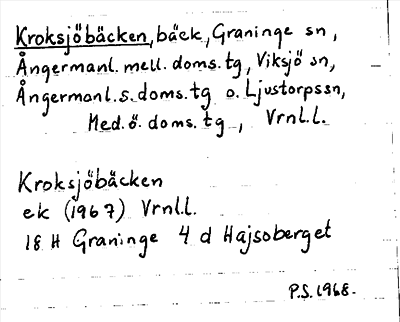 Kroksjöbäcken, bäck, Graninge sn,
Ångermanl. mell. doms. tg, Viksjö sn,
Ångermanl. s. doms. tg o. Ljustorpssn,
Med. ö. doms. tg, Vrnl.l.
Kroksjöbäcken
ek (1967) Vrnl.l.
18 H Graninge 4 d Hajsoberget
P.S. 1968.